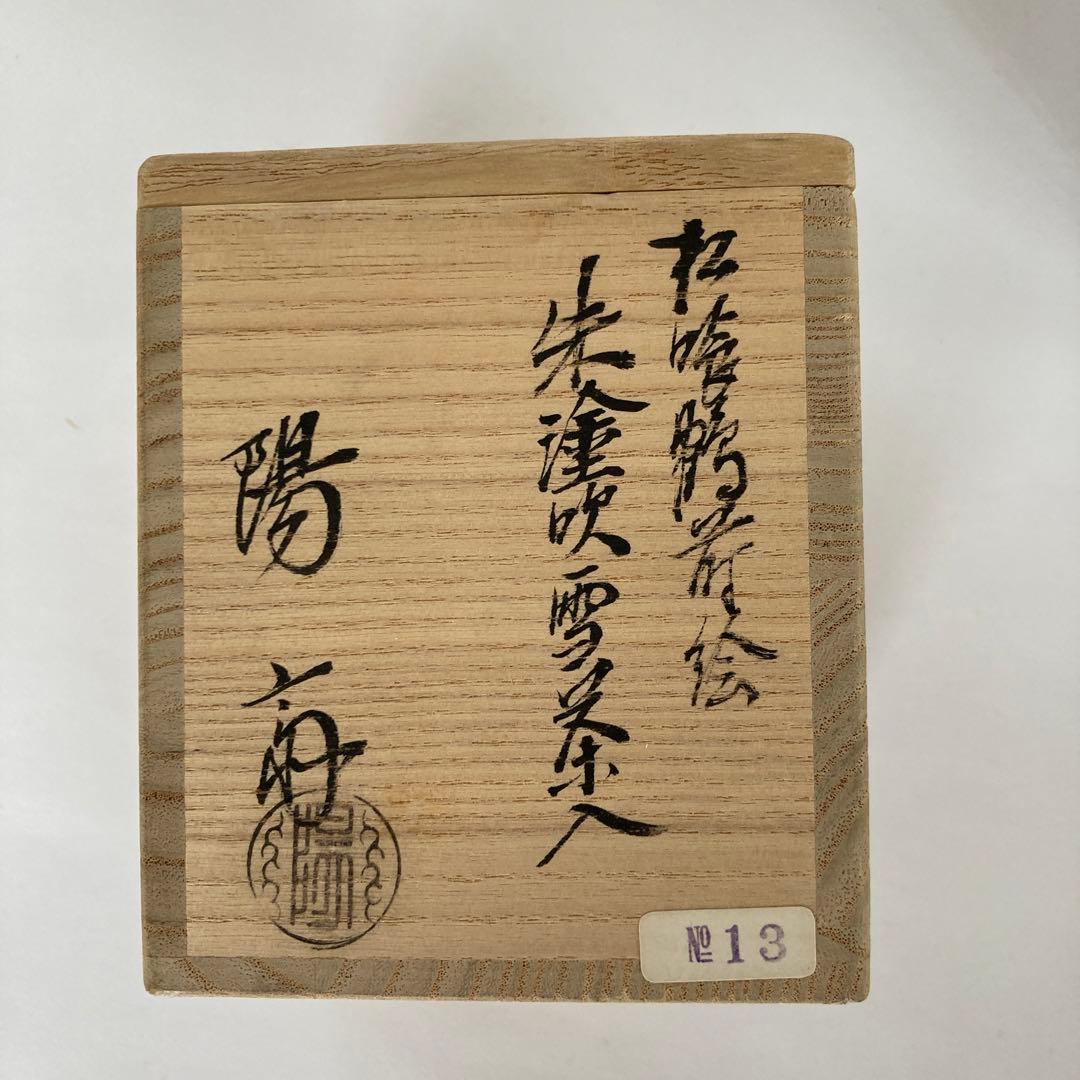 松喰鶴蒔絵
朱塗吹雪茶入
陽斎
№13